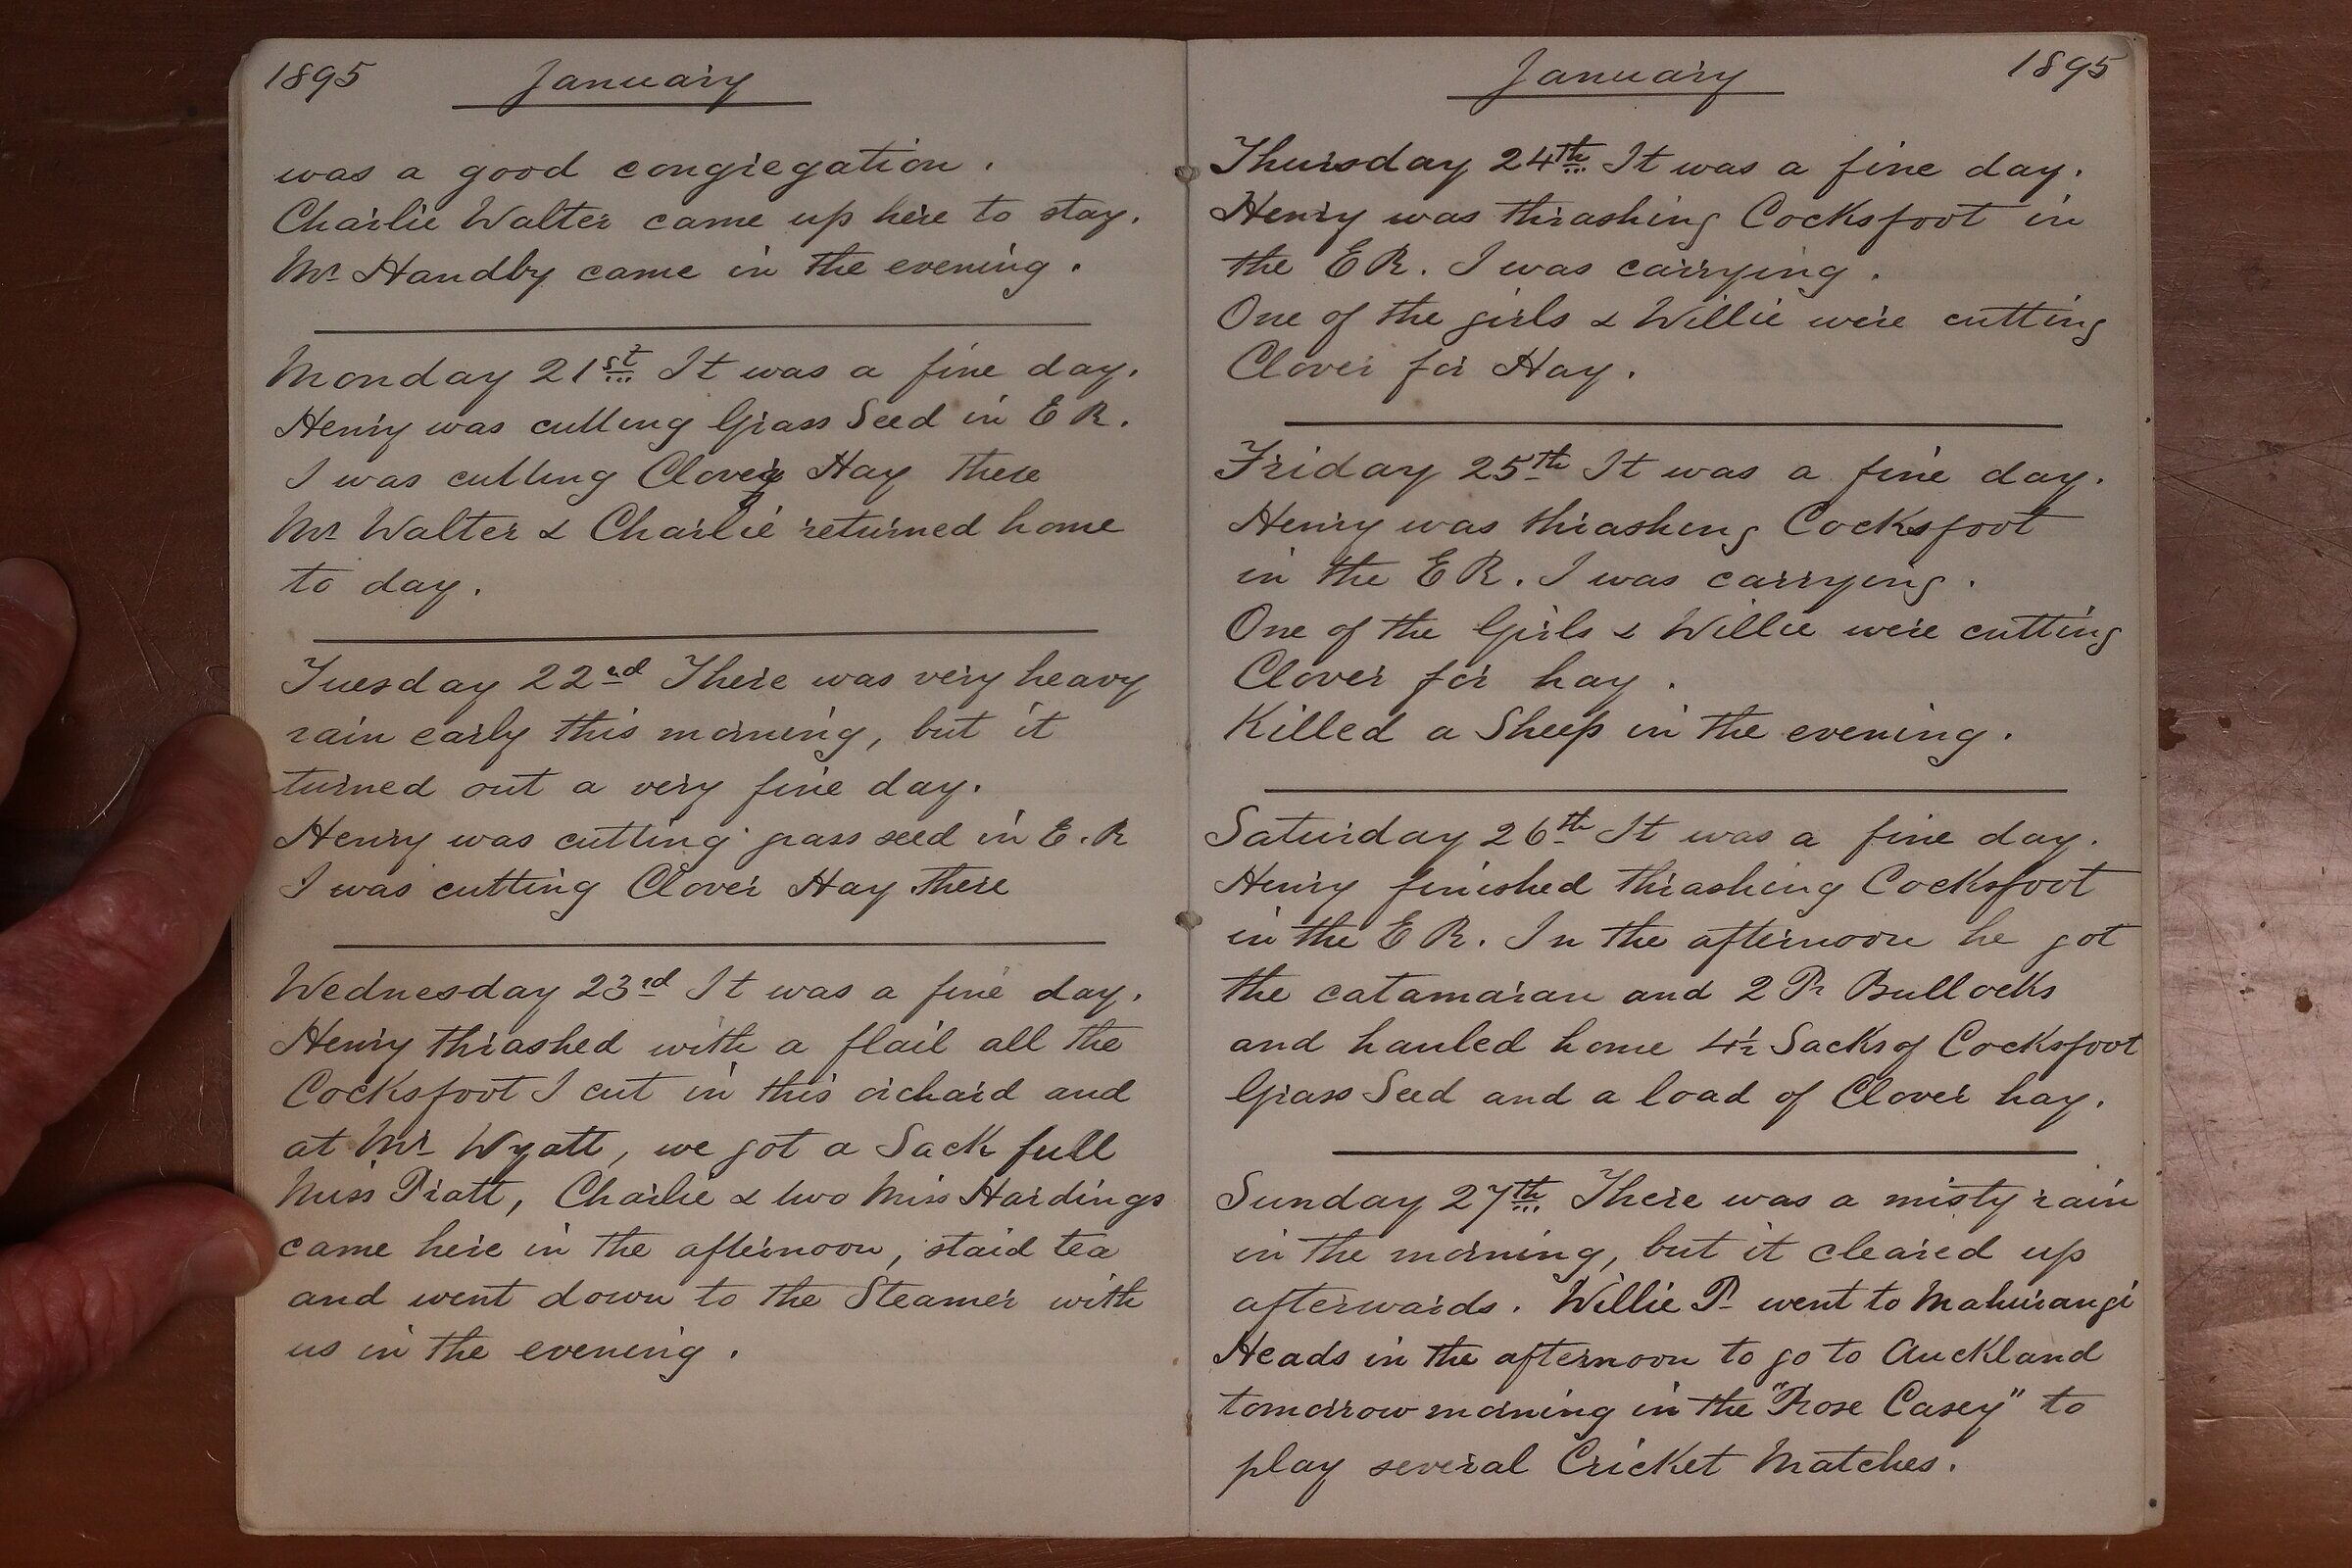 1895 January
was a good congregation.
Charlie Walter came up here to stay.
Mr Handby came in the evening.
Monday 21st It was a fine day.
Henry was cutting Grass Seed in E R.
I was cutting Clover Hay there
Mr Walter & Charlie returned home
to day.
Tuesday 22nd There was very heavy
rain early this morning, but it
turned out a very fine day.
Henry was cutting grass seed in E. R
I was cutting Clover Hay there
Wednesday 23rd It was a fine day.
Henry thrashed with a flail all the
Cocksfoot I cut in this orchard and
at Mr Wyatt, we got a Sack full
Miss Pratt, Charlie & two Miss Hardings
came here in the afternoon, staid tea
and went down to the Steamer with
us in the evening.
January 1895
Thursday 24th It was a fine day.
Henry was thrashing Cocksfoot in
the E R. I was carrying.
One of the girls & Willie were cutting
Clover for Hay.
Friday 25th It was a fine day.
Henry was thrashing Cocksfoot
in the E R. I was carrying.
One of the Girls & Willie were cutting
Clover for hay.
Killed a Sheep in the evening.
Saturday 26th It was a fine day.
Henry finished thrashing Cocksfoot
in the E R. In the afternoon he got
the catamaran and 2 Pr Bullocks
and hauled home 4½ Sacks of Cocksfoot
Grass Seed and a load of Clover hay.
Sunday 27th There was a misty rain
in the morning, but it cleared up
afterwards. Willie P. went to Mahurangi
Heads in the afternoon to go to Auckland
tomorrow morning in the "Rose Casey" to
play several Cricket Matches.